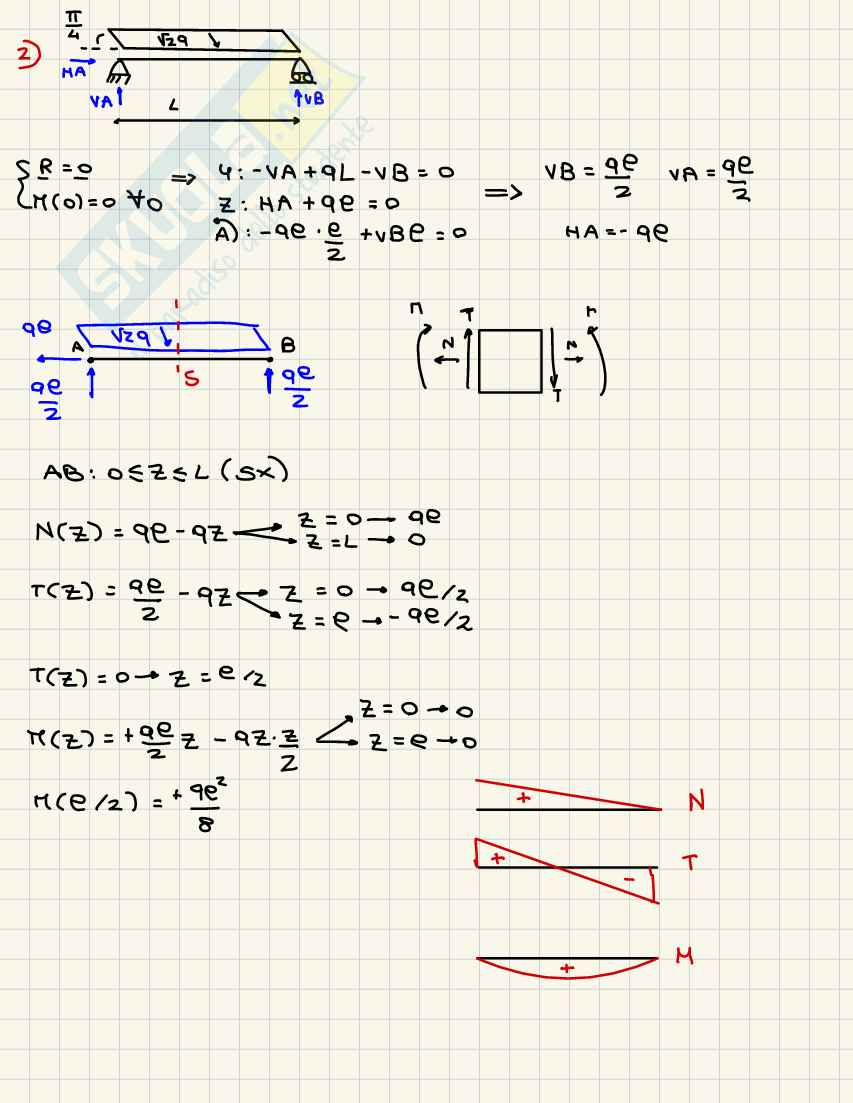 π/4
2) √2q
HA
VA L VB
{ R = 0 => y: -VA + qL - VB = 0 => VB = qe/2 VA = qe/2
M(0) = 0 ∀0 z: HA + qe = 0
A): -qe · e/2 + VBe = 0 HA = - qe
qe A √2q B
qe/2 S qe/2
M T N N T M
AB: 0 ≤ z ≤ L (sx)
N(z) = qe - qz z = 0 → qe
z = L → 0
T(z) = qe/2 - qz z = 0 → qe/2
z = e → - qe/2
T(z) = 0 → z = e/2
M(z) = + qe/2 z - qz · z/2 z = 0 → 0
z = e → 0
M(e/2) = + qe²/8
+ N
+ - T
+ M
SKUOLA.net